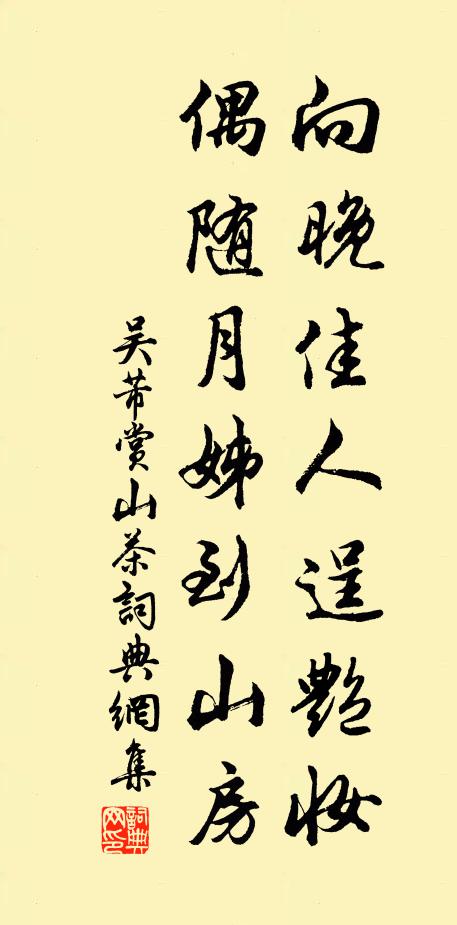 向晚佳人逞艷妝
偶随月姊到山房
吳芾賞山茶詞典網集
詞典
网印